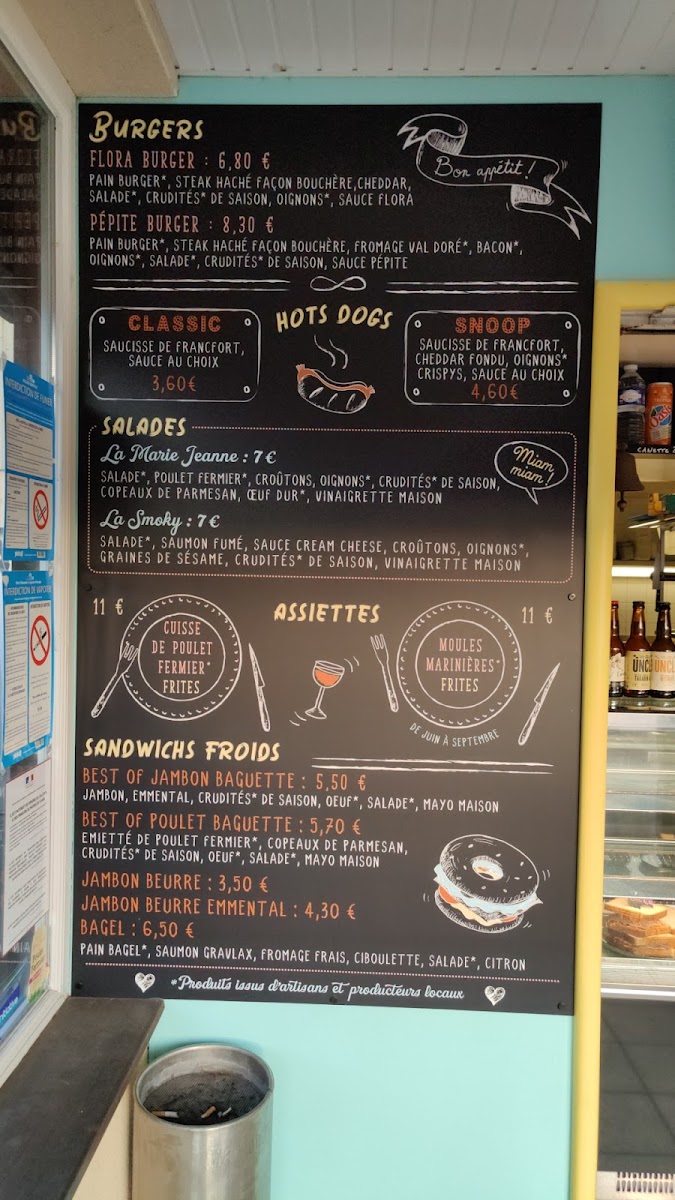 BURGERS
FLORA BURGER : 6,80 €
PAIN BURGER*, STEAK HACHÉ FAÇON BOUCHÈRE,CHEDDAR,
SALADE*, CRUDITÉS* DE SAISON, OIGNONS*, SAUCE FLORA
PÉPITE BURGER : 8,30 €
PAIN BURGER*, STEAK HACHÉ FAÇON BOUCHÈRE, FROMAGE VAL DORÉ*, BACON*,
OIGNONS*, SALADE*, CRUDITÉS* DE SAISON, SAUCE PÉPITE
Bon appétit !
HOTS DOGS
CLASSIC
SAUCISSE DE FRANCFORT,
SAUCE AU CHOIX
3,60€
SNOOP
SAUCISSE DE FRANCFORT,
CHEDDAR FONDU, OIGNONS*
CRISPYS, SAUCE AU CHOIX
4,60€
SALADES
La Marie Jeanne : 7 €
SALADE*, POULET FERMIER*, CROÛTONS, OIGNONS*, CRUDITÉS* DE SAISON,
COPEAUX DE PARMESAN, ŒUF DUR*, VINAIGRETTE MAISON
Miam
miam !
La Smoky : 7 €
SALADE*, SAUMON FUMÉ, SAUCE CREAM CHEESE, CROÛTONS, OIGNONS*,
GRAINES DE SÉSAME, CRUDITÉS* DE SAISON, VINAIGRETTE MAISON
ASSIETTES
11 €
CUISSE
DE POULET
FERMIER*
FRITES
11 €
MOULES
MARINIÈRES*
FRITES
DE JUIN À SEPTEMBRE
SANDWICHS FROIDS
BEST OF JAMBON BAGUETTE : 5,50 €
JAMBON, EMMENTAL, CRUDITÉS* DE SAISON, OEUF*, SALADE*, MAYO MAISON
BEST OF POULET BAGUETTE : 5,70 €
EMIETTÉ DE POULET FERMIER*, COPEAUX DE PARMESAN,
CRUDITÉS* DE SAISON, OEUF*, SALADE*, MAYO MAISON
JAMBON BEURRE : 3,50 €
JAMBON BEURRE EMMENTAL : 4,30 €
BAGEL : 6,50 €
PAIN BAGEL*, SAUMON GRAVLAX, FROMAGE FRAIS, CIBOULETTE, SALADE*, CITRON
*Produits issus d'artisans et producteurs locaux
INTERDICTION DE FUMER
INTERDICTION DE VAPOTER
CANETTE
UNCL
UNCL